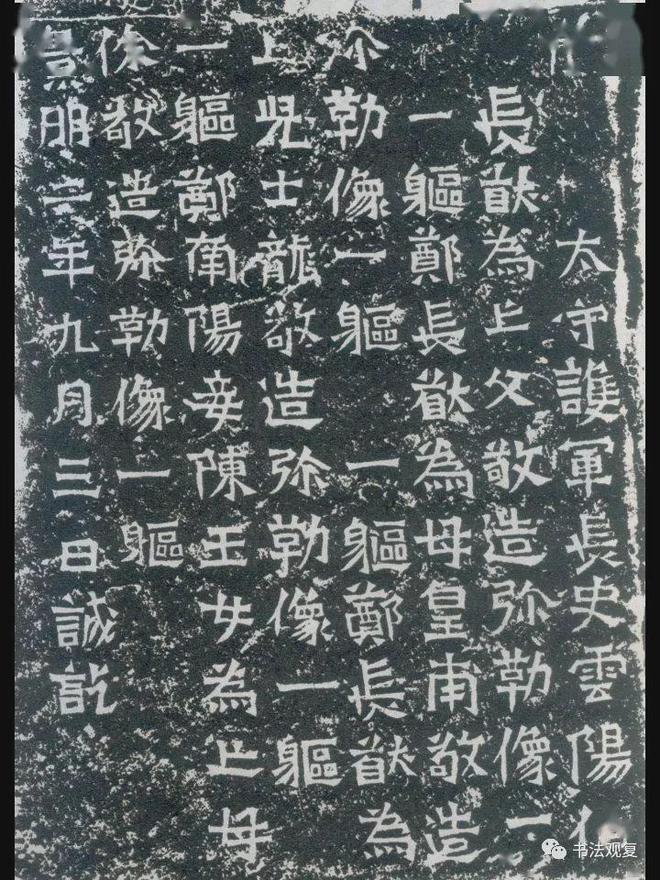 太守護軍長史雲陽伯
長猷為亡父敬造弥勒像一
一軀鄭長猷為母皇南敬造
弥勒像一軀一軀鄭長猷為
亡児士龍敬造弥勒像一軀
一軀鄭南陽妾陳玉女為亡母
徐敬造弥勒像一軀
景明二年九月三日誡訖
书法观复